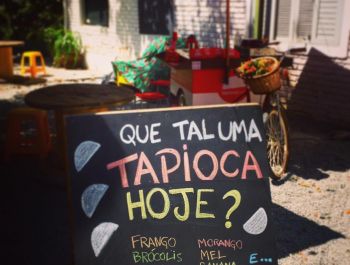 QUE TAL UMA
TAPIOCA
HOJE?
FRANGO MORANGO
BRÓCOLIS MEL
BANANA E...